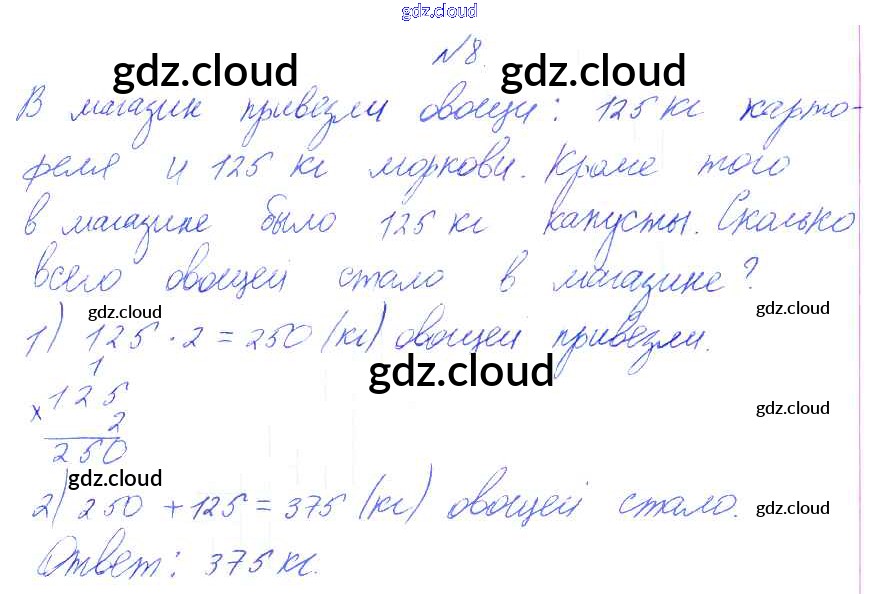 gdz.cloud
N8.
gdz.cloud gdz.cloud
В магазин привезли овощи: 125 кг карто-
феля и 125 кг моркови. Кроме того
в магазине было 125 кг капусты. Сколько
всего овощей стало в магазине?
gdz.cloud gdz.cloud
1) 125 · 2 = 250 (кг) овощей привезли.
gdz.cloud
1
× 125
2
250
gdz.cloud
gdz.cloud
2) 250 + 125 = 375 (кг) овощей стало.
gdz.cloud
Ответ: 375 кг.